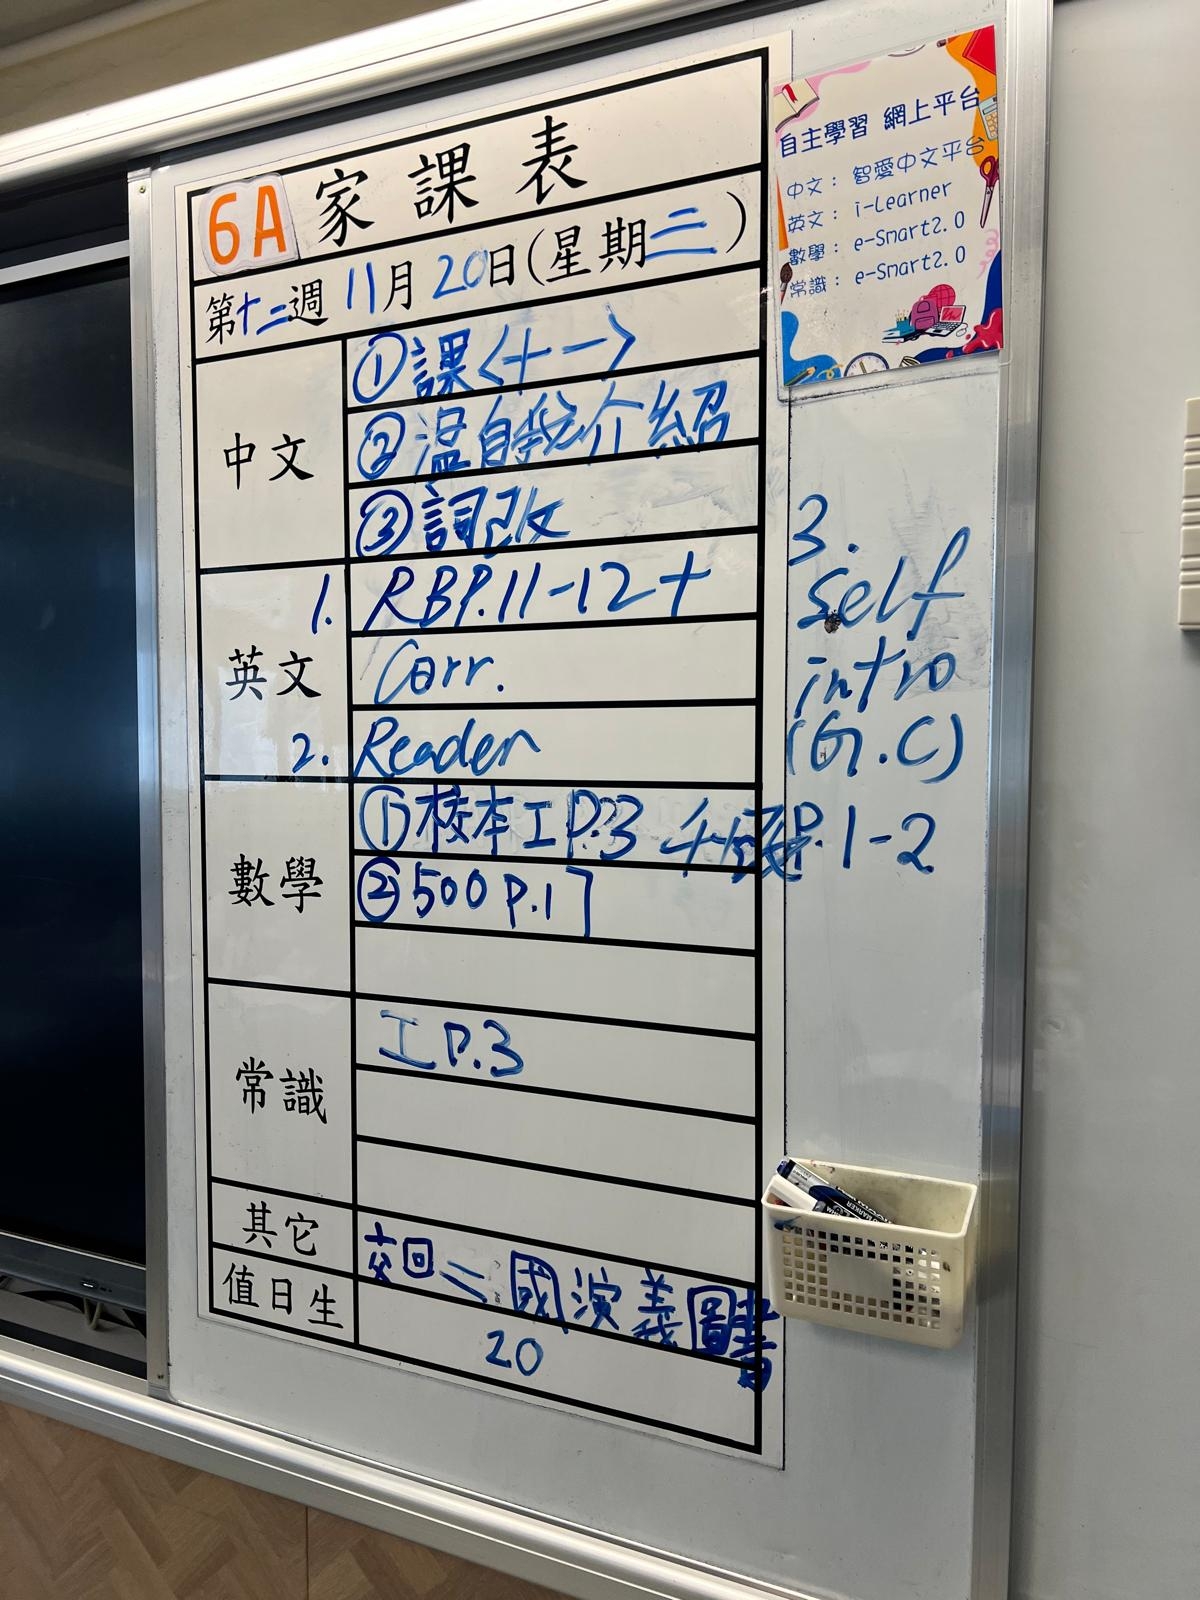 6A 家課表
第十二週 11月20日(星期三)
中文
①課〈十一〉
②溫自我介紹
③詞改
英文
1. RB P.11-12 +
Corr.
2. Reader
3.
self
intro
(G.C)
數學
①校本工P.3 P.1-2
②500 P.17
常識
工P.3
其它
交回三國演義圖書
值日生
20
自主學習 網上平台
中文： 智愛中文平台
英文： i-Learner
數學： e-Smart2.0
常識： e-Smart2.0